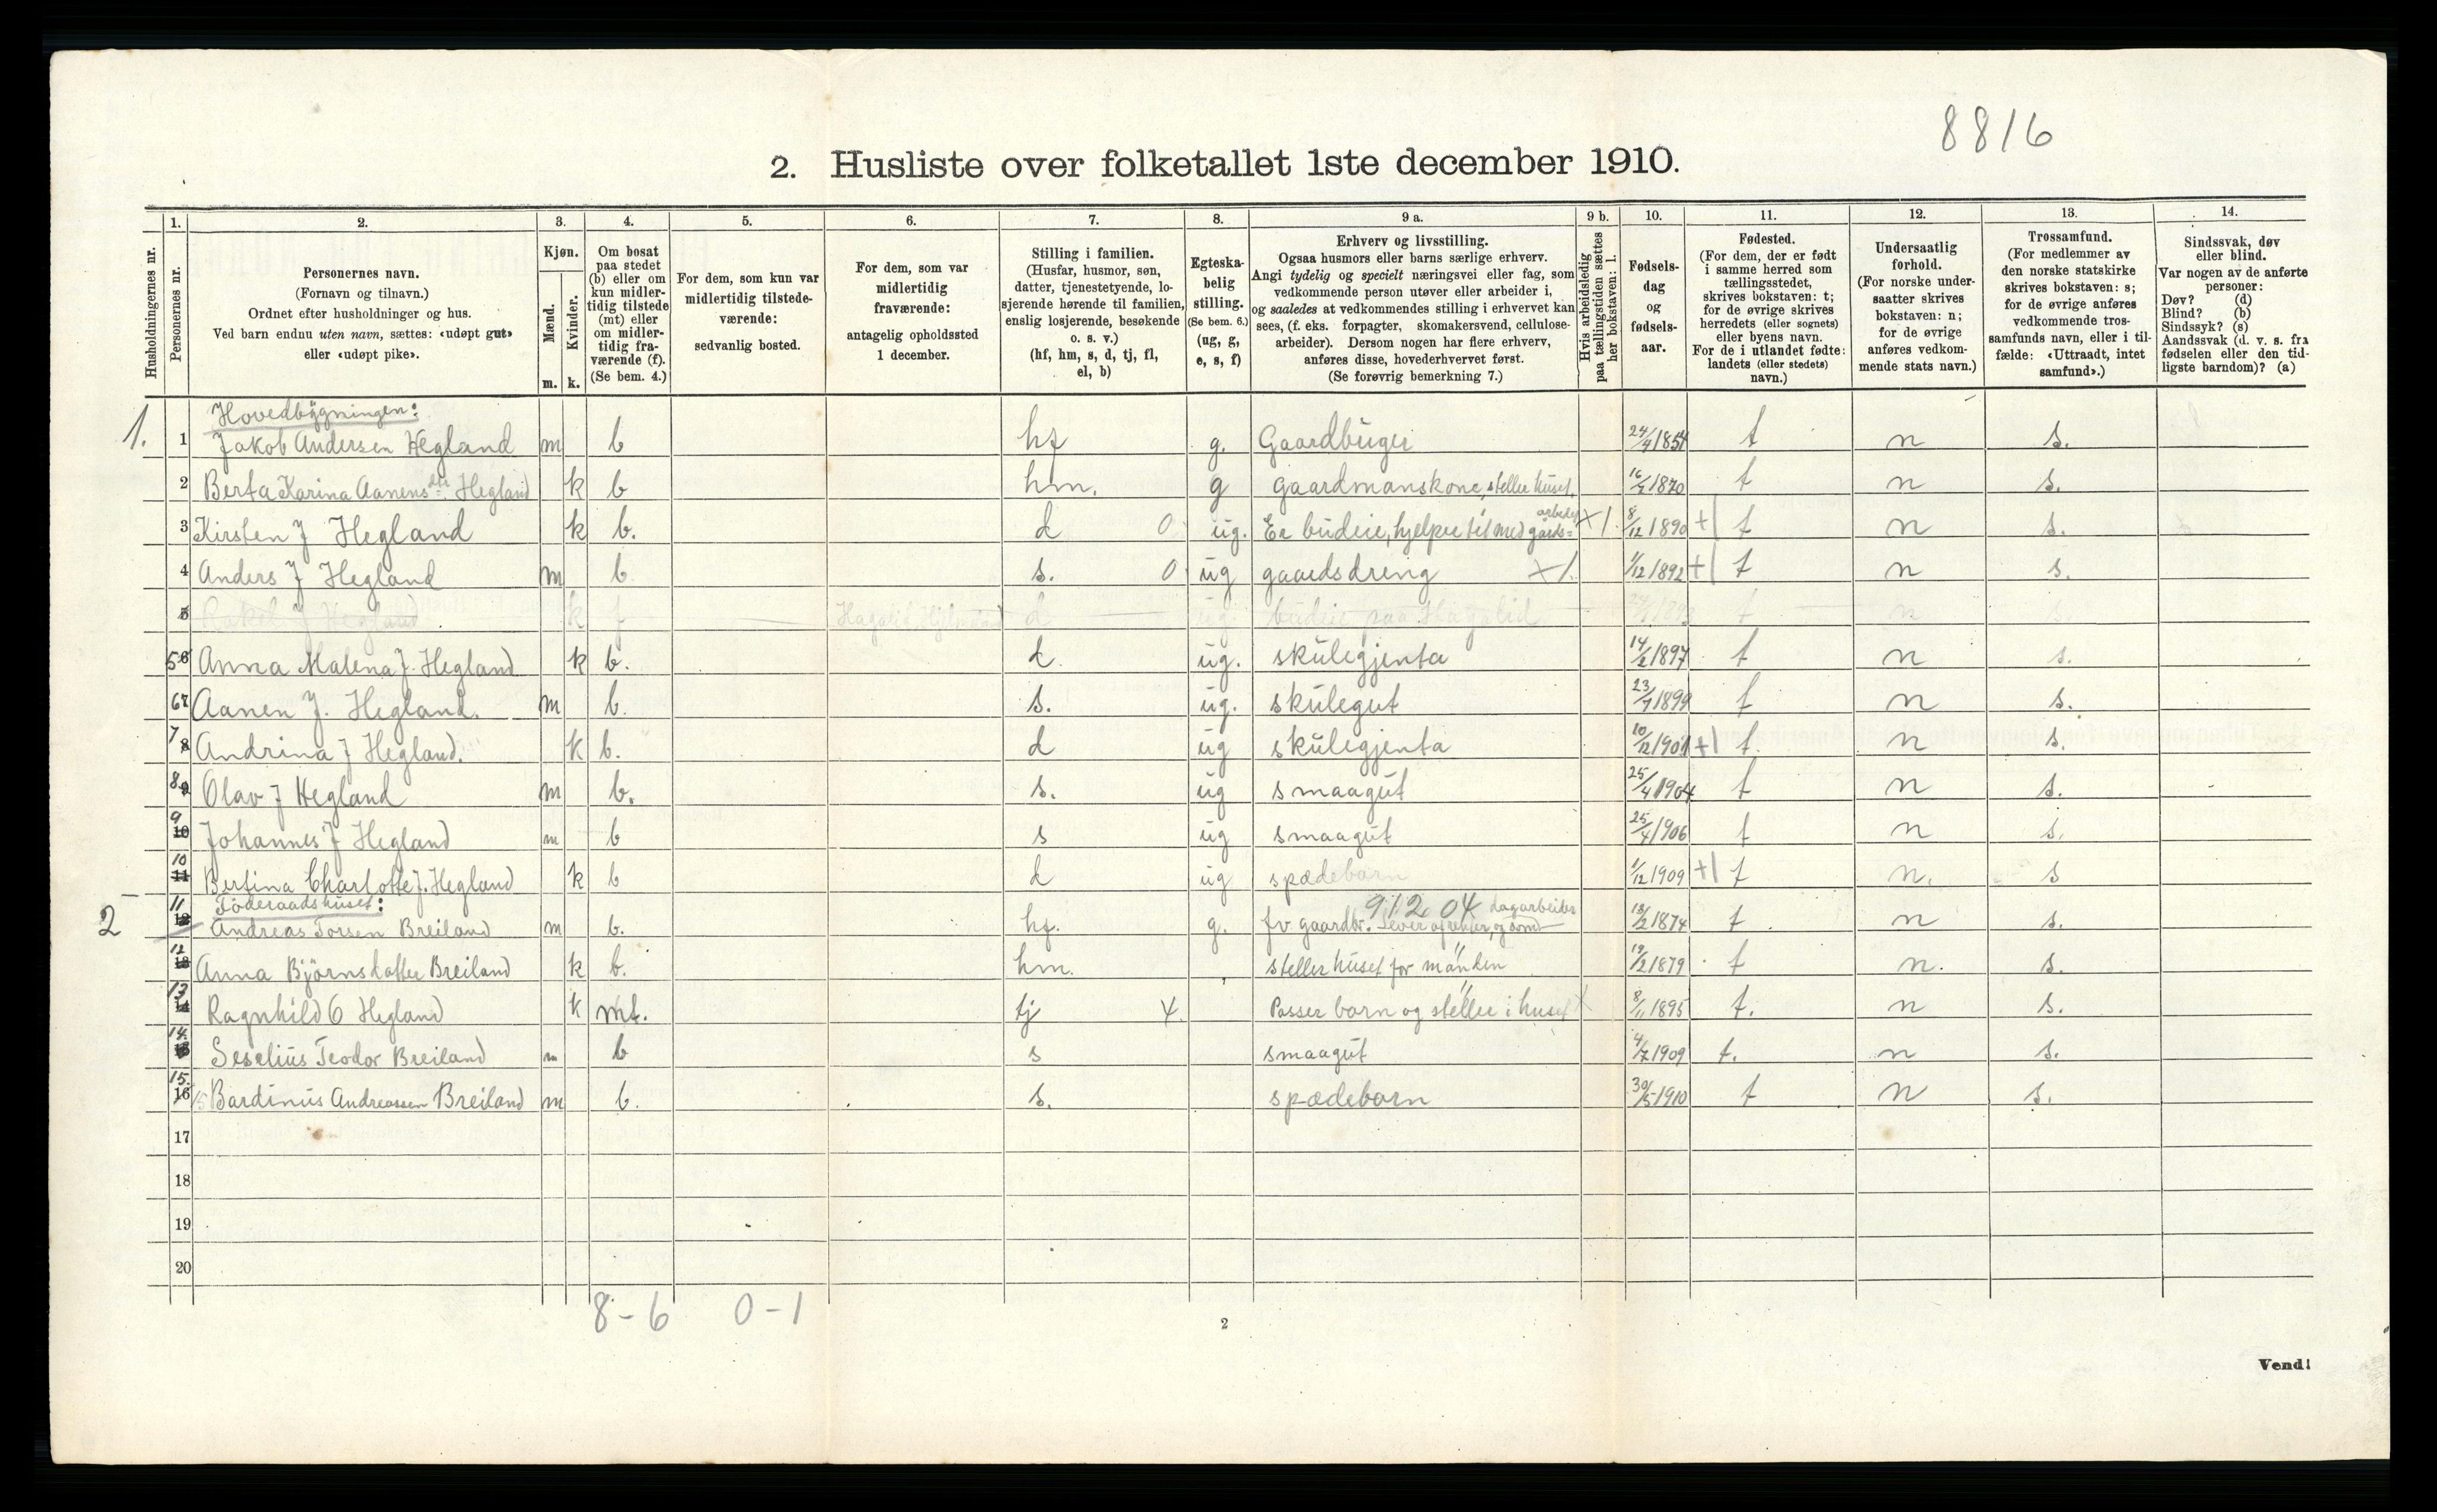 8816
2. Husliste over folketallet 1ste december 1910.
1. 2. 3. 4. 5. 6. 7. 8. 9 a. 9 b. 10. 11. 12. 13. 14.
Husholdningernes nr.
Personernes nr.
Personernes navn.
(Fornavn og tilnavn.)
Ordnet efter husholdninger og hus.
Ved barn endnu uten navn, sættes: «udøpt gut»
eller «udøpt pike».
Kjøn.
Mænd.
Kvinder.
m. k.
Om bosat
paa stedet
(b) eller om
kun midler-
tidig tilstede
(mt) eller
om midler-
tidig fra-
værende (f).
(Se bem. 4.)
For dem, som kun var
midlertidig tilstede-
værende:
sedvanlig bosted.
For dem, som var
midlertidig
fraværende:
antagelig opholdssted
1 december.
Stilling i familien.
(Husfar, husmor, søn,
datter, tjenestetyende, lo-
sjerende hørende til familien,
enslig losjerende, besøkende
o. s. v.)
(hf, hm, s, d, tj, fl,
el, b)
Egteska-
belig
stilling.
(Se bem. 6.)
(ug, g,
e, s, f)
Erhverv og livsstilling.
Ogsaa husmors eller barns særlige erhverv.
Angi tydelig og specielt næringsvei eller fag, som
vedkommende person utøver eller arbeider i,
og saaledes at vedkommendes stilling i erhvervet kan
sees, (f. eks. forpagter, skomakersvend, cellulose-
arbeider). Dersom nogen har flere erhverv,
anføres disse, hovederhvervet først.
(Se forøvrig bemerkning 7.)
Hvis arbeidsledig
paa tællingstiden sættes
her bokstaven: l.
Fødsels-
dag
og
fødsels-
aar.
Fødested.
(For dem, der er født
i samme herred som
tællingsstedet,
skrives bokstaven: t;
for de øvrige skrives
herredets (eller sognets)
eller byens navn.
For de i utlandet fødte:
landets (eller stedets)
navn.)
Undersaatlig
forhold.
(For norske under-
saatter skrives
bokstaven: n;
for de øvrige
anføres vedkom-
mende stats navn.)
Trossamfund.
(For medlemmer av
den norske statskirke
skrives bokstaven: s;
for de øvrige anføres
vedkommende tros-
samfunds navn, eller i til-
fælde: «Uttraadt, intet
samfund».)
Sindssvak, døv
eller blind.
Var nogen av de anførte
personer:
Døv? (d)
Blind? (b)
Sindssyk? (s)
Aandssvak (d. v. s. fra
fødselen eller den tid-
ligste barndom)? (a)
Hovedbygningen:
1. 1 Jakob Andersen Hegland m b hf g. Gaardbruger 24/4 1854 t n s.
2 Berta Karina Aanensdtr. Hegland k b hm. g gaardmanskone, steller huset. 16/7 1870 t n s.
3 Kirsten J Hegland k b. d 0 ug. Er budeie, hjelper til med gards= arbeide +1. 8/12 1890 +1 t n s.
4 Anders J Hegland m b s. 0 ug gaardsdreng +1. 1/12 1892 +1 t n s.
5 Rakel J Hegland k f d ug. budeie paa t n
5 6 Anna Malena J. Hegland k b. d. ug. skulegjenta 14/2 1897 t n s.
6 7 Aanen J. Hegland. m b. s. ug. skulegut 23/7 1899 t n s.
7 8 Andrina J Hegland. k b. d ug skulegjenta 10/12 1901 +1 t. n s.
8 9 Olav J Hegland m b. s. ug smaagut 25/4 1904 t n s.
9 10 Johannes J Hegland m b s ug smaagut 25/4 1906 t n s.
10 11 Bertina Charlotte J. Hegland k b d ug spædebarn 1/12 1909 +1 t n. s
Föderaadshuset:
2 11 12 Andreas Torsen Breiland m b. hf. g. fv gaardbr. 91204 dagarbeider 13/2 1874 t n s.
12 13 Anna Björnsdatter Breiland k b. hm. steller huset for manden 19/2 1879 t n. s.
13 14 Ragnhild O Hegland k mt. tj 4. Passer barn og steller i huset 8/11 1895 t. n s.
14. 15 Seselius Teodor Breiland m b s smaagut 4/7 1909 t. n s.
15. 16 15 Bardinus Andreassen Breiland m b. s. spædebarn 30/5 1910 t n s.
17
18
19
20
8 - 6 0 - 1
2
Vend!